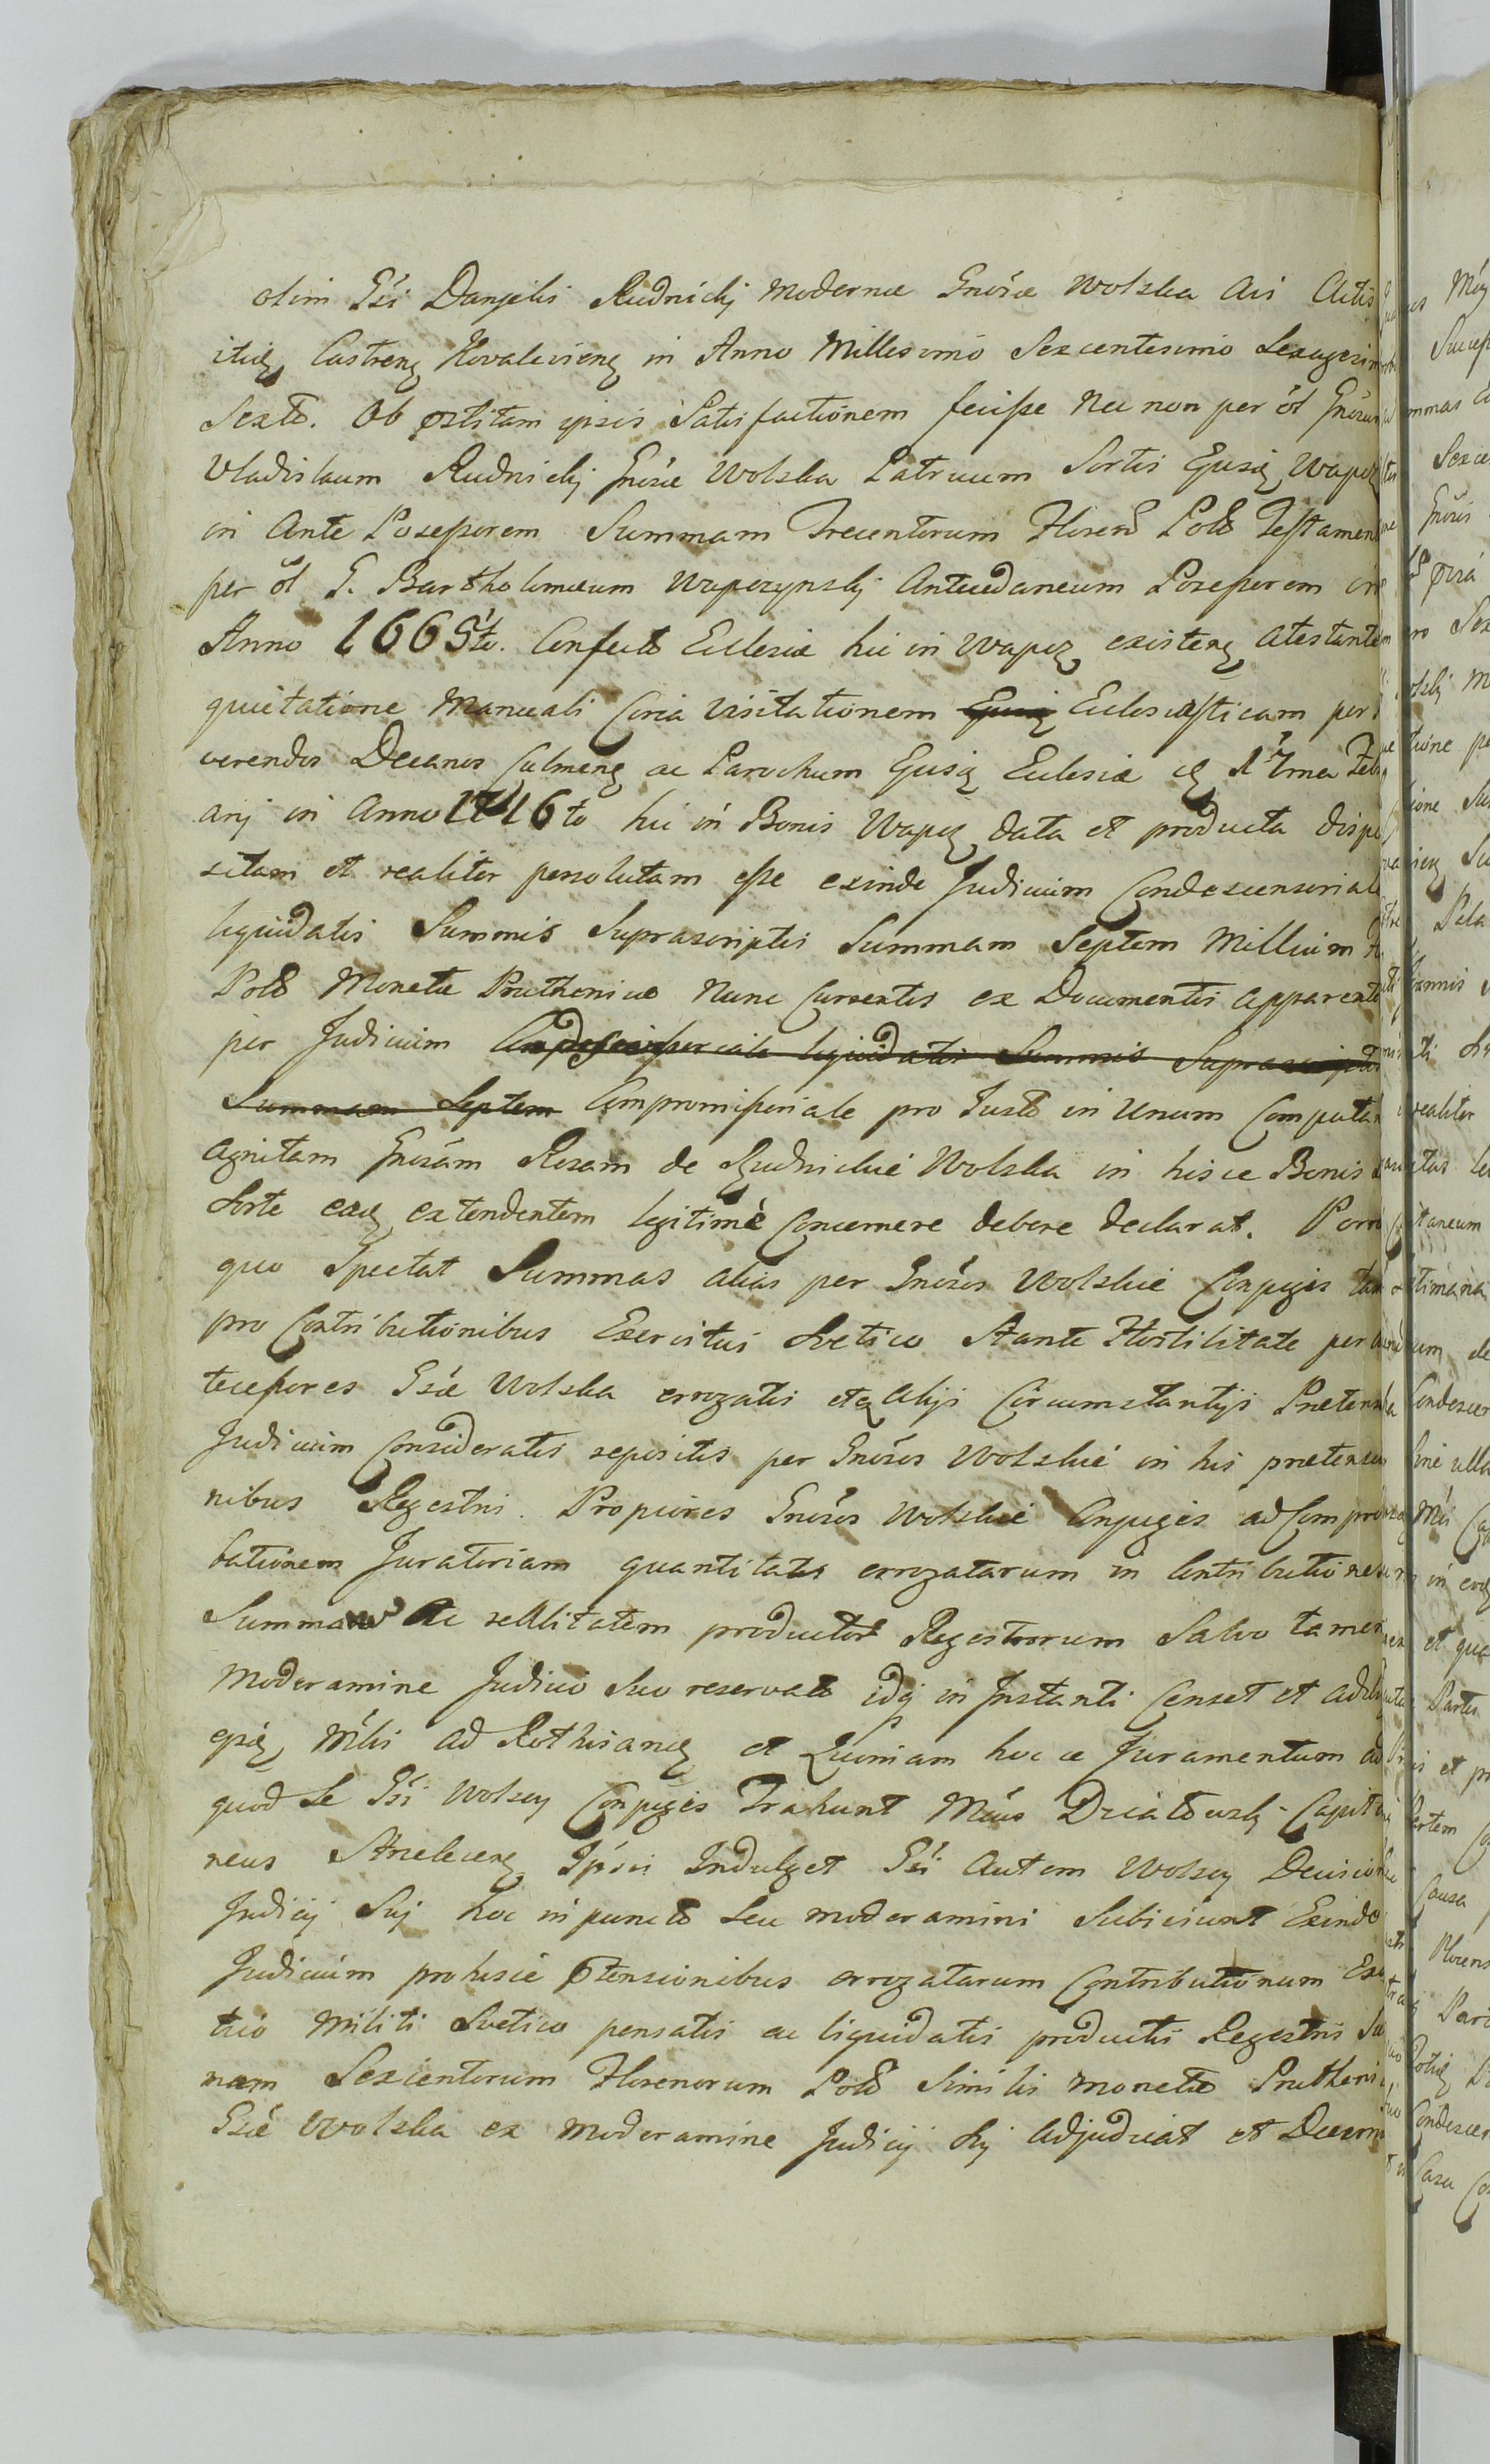 olim Gsi Danielis Rudnickj Modernæ Gnosæ Wolska Avi Actis
itidę Castreną Kovalevieną in Anno Millesimo Sexcentesimo Sexagesim
Sexto. Ob pstitam ipsis Satisfactionem fecisse Nec non per ol Gnosum
Vladislaum Rudnickj Gnosæ Wolska Patruum Sortis Ejusdę Wapcz
in Ante Possessorem Summam Trecentorum Floren Pold Testament
per ol G. Bartholomæum Wapczynskj Antecedaneum Possessorem in
Anno 1665to. Confecto Ecclesiæ hic in Wapcz existeną atestante
quietatione Manuali Circa Visitationem Ejusdę Eclesiasticam per
verendos Decanos Culmeną ac Parochum Ejusdę Eclesiæ
arj in Anno 1716to hic in Bonis Wapcz data et producta dispo
sitam et realiter persolutam esse exinde Judicium Condescensoriale
liquidatis Summis Suprascriptis Summam Septem Millium
Pold Monetæ Pruthenicæ Nunc Currentis ex Documentis apparente
per Judicium Condescensoriale liquidatis Summis Suprascriptis
Summam Septem Compromissoriale pro Justo in Unum Computa
agnitam Gnosam Rosam de Rudnickie Wolska in hisce Bonis
Sorte eaq extendentem legitimè Concernere debere declarat. Porro
quo Spectat Summas alias per Gnosos Wolskie Conjuges tam
pro Contributionibus Exercitui Svetico Stante Hostilitate per
tecessores Gsæ Wolska errogatis etq alijs Circumstantijs Prætens
Judicium Consideratis repositis per Gnosos Wolskie in his prætensio
nibus Regestris. Propiores Gnosos Wolskie Conjuges ad Compro
bationem Juratoriam quantitatis errogatarum in Contributiones
Summaru Ac reAlitatem productor Regestrorum Salvo tamen
Moderamine Judicio Suo reservato idq in Instanti Censet et adin
epię Mlis ad Rothisaneą et Quoniam hocce Juramentum ad
quod Se Gsi Wolscy Conjuges Trahunt Mcus Dziatowskj Capita
neus Strelecenę Ipsis Indulget Gsi Autem Wolscy Decisioni
Judicij Suj hoc in puncto Seu moderamini Subiciunt Exinde
Judicium prohisce ptensionibus errogatarum Contributionum Exer
tuo Militi Svetico pensatis ac liquidatis productis Regestris Su
mam Sexcentorum Florenorum Pold Similis monetæ Prutheni
Gsæ Wolska ex Moderamine Judicij Sui Adjudicat et Decerni